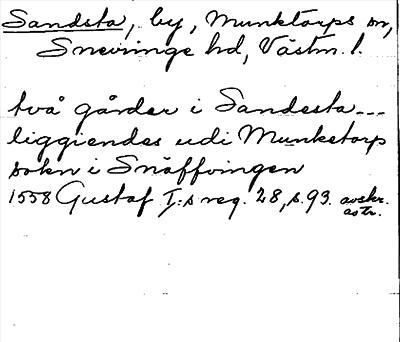 Sandsta, by, Munktorps sn,
Snevringe hd, Västm. l.
två gårder i Sandesta ---
liggiendes udi Munketorp
sokn i Snäffvingen
1558 Gustaf I:s reg. 28, s. 93. avskr.
avtr.